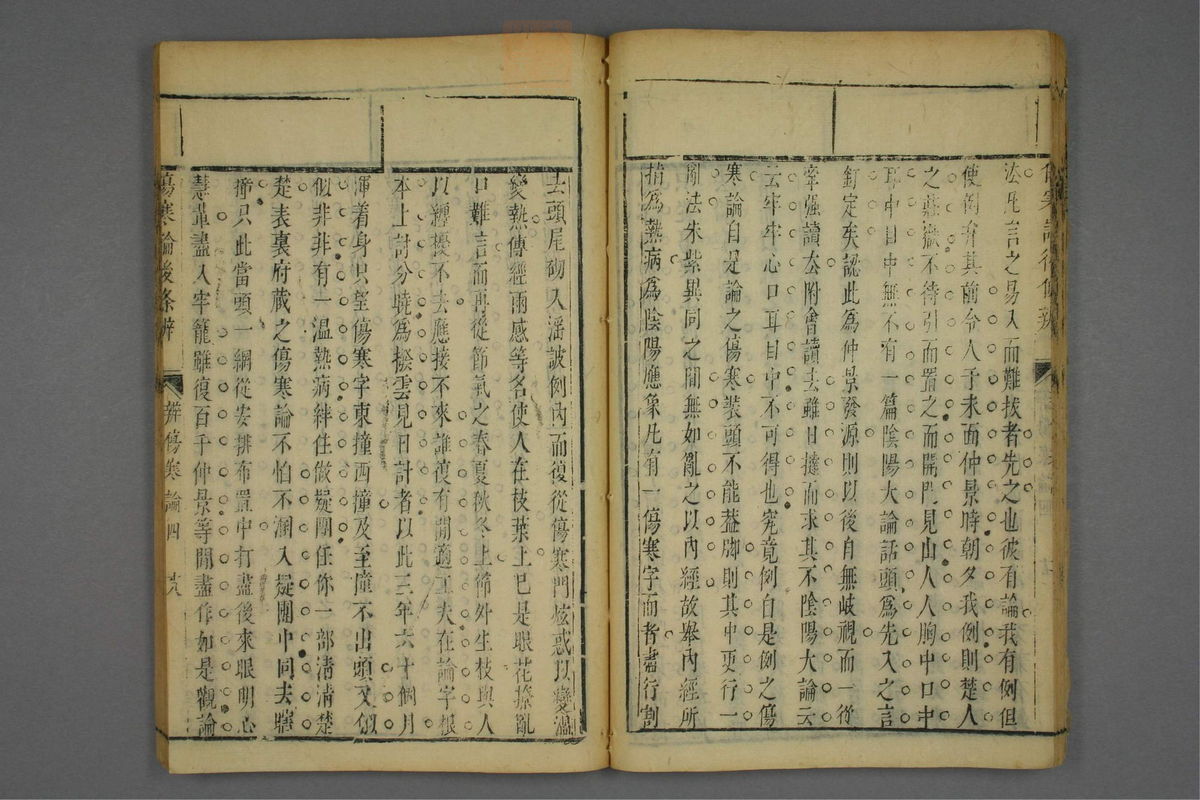 法凡言之易入而難拔者先之也彼有論我有例但
使例弁其前令人于未面仲景時朝夕我例則楚人
之莊嶽不待引而置之而開門見山人人胸中口中
耳中目中無不有一篇陰陽大論話頭為先入之言
釘定矣認此為仲景發源則以後自無歧視而一從
牽强讀去附會讀去雖日撻而求其不陰陽大論云
云牢牢心口耳目中不可得也究竟例自是例之傷
寒論自是論之傷寒裝頭不能蓋脚則其中更行一
亂法朱紫異同之間無如亂之以內經故舉內經所
指為熱病為陰陽應象凡有一傷寒字而者盡行割
去頭尾砌入滛詖例內而復從傷寒門炫惑以變溫
變熱傳經兩感等名使人在枝葉上已是眼花撩亂
口難言而再從節氣之春夏秋冬上節外生枝與人
以纏擾不去應接不來誰復有閒適工夫在論字根
本上討分曉為撥雲見日計者以此三年六十個月
渾着身只望傷寒字東撞西撞及至撞不出頭又似
似非非有一溫熱病絆住做疑團任你一部清清楚
楚表裏府藏之傷寒論不怕不溷入疑團中同去瞎
撞只此當頭一綱從安排布置中打盡後來眼明心
慧輩盡入牢籠雖復百千仲景等閒盡作如是觀論
傷寒論後條辨
辨傷寒論四
十八